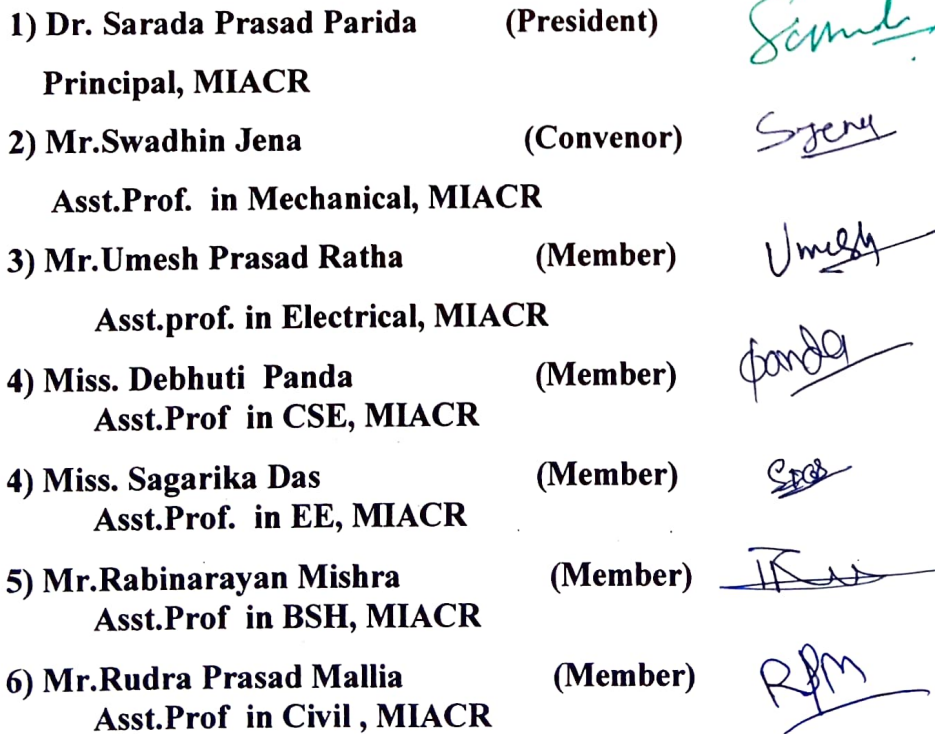 1) Dr. Sarada Prasad Parida (President)
Principal, MIACR
2) Mr.Swadhin Jena (Convenor) SJena
Asst.Prof. in Mechanical, MIACR
3) Mr.Umesh Prasad Ratha (Member) Umesh
Asst.prof. in Electrical, MIACR
4) Miss. Debhuti Panda (Member) Panda
Asst.Prof in CSE, MIACR
4) Miss. Sagarika Das (Member)
Asst.Prof. in EE, MIACR
5) Mr.Rabinarayan Mishra (Member)
Asst.Prof in BSH, MIACR
6) Mr.Rudra Prasad Mallia (Member) RPM
Asst.Prof in Civil , MIACR